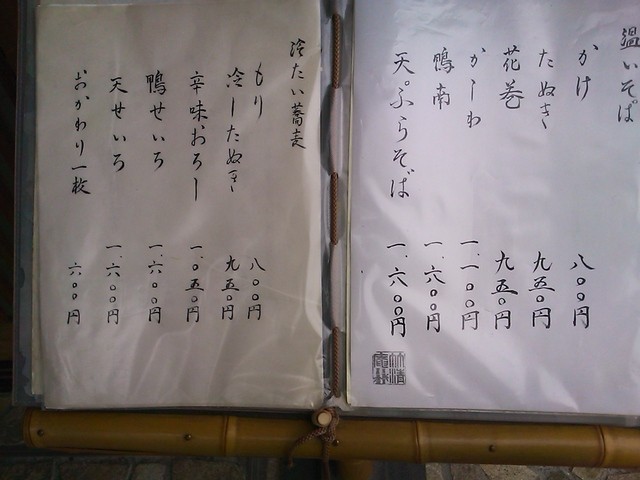 温いそば
かけ 八〇〇円
たぬき 九五〇円
花巻 九五〇円
かしわ 一、一〇〇円
鴨南 一、六〇〇円
天ぷらそば 一、六〇〇円
冷たい蕎麦
もり 八〇〇円
冷したぬき 九五〇円
辛味おろし 一、〇五〇円
鴨せいろ 一、六〇〇円
天せいろ 一、六〇〇円
おかわり一枚 六〇〇円